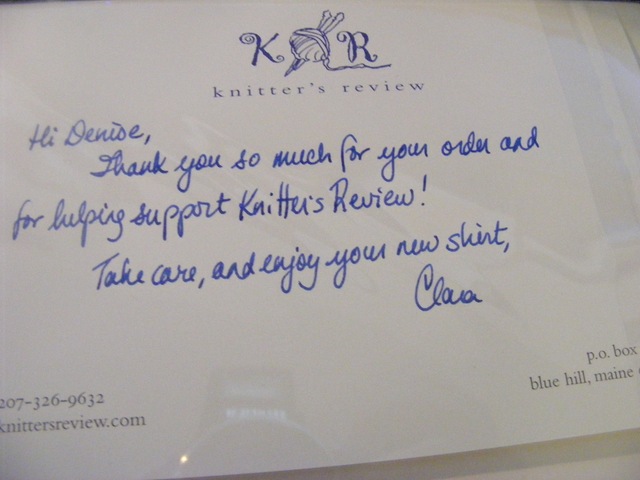 K R
knitter's review
Hi Denise,
Thank you so much for your order and
for helping support Knitter's Review!
Take care, and enjoy your new shirt,
Clara
207-326-9632
knittersreview.com
p.o. box
blue hill, maine